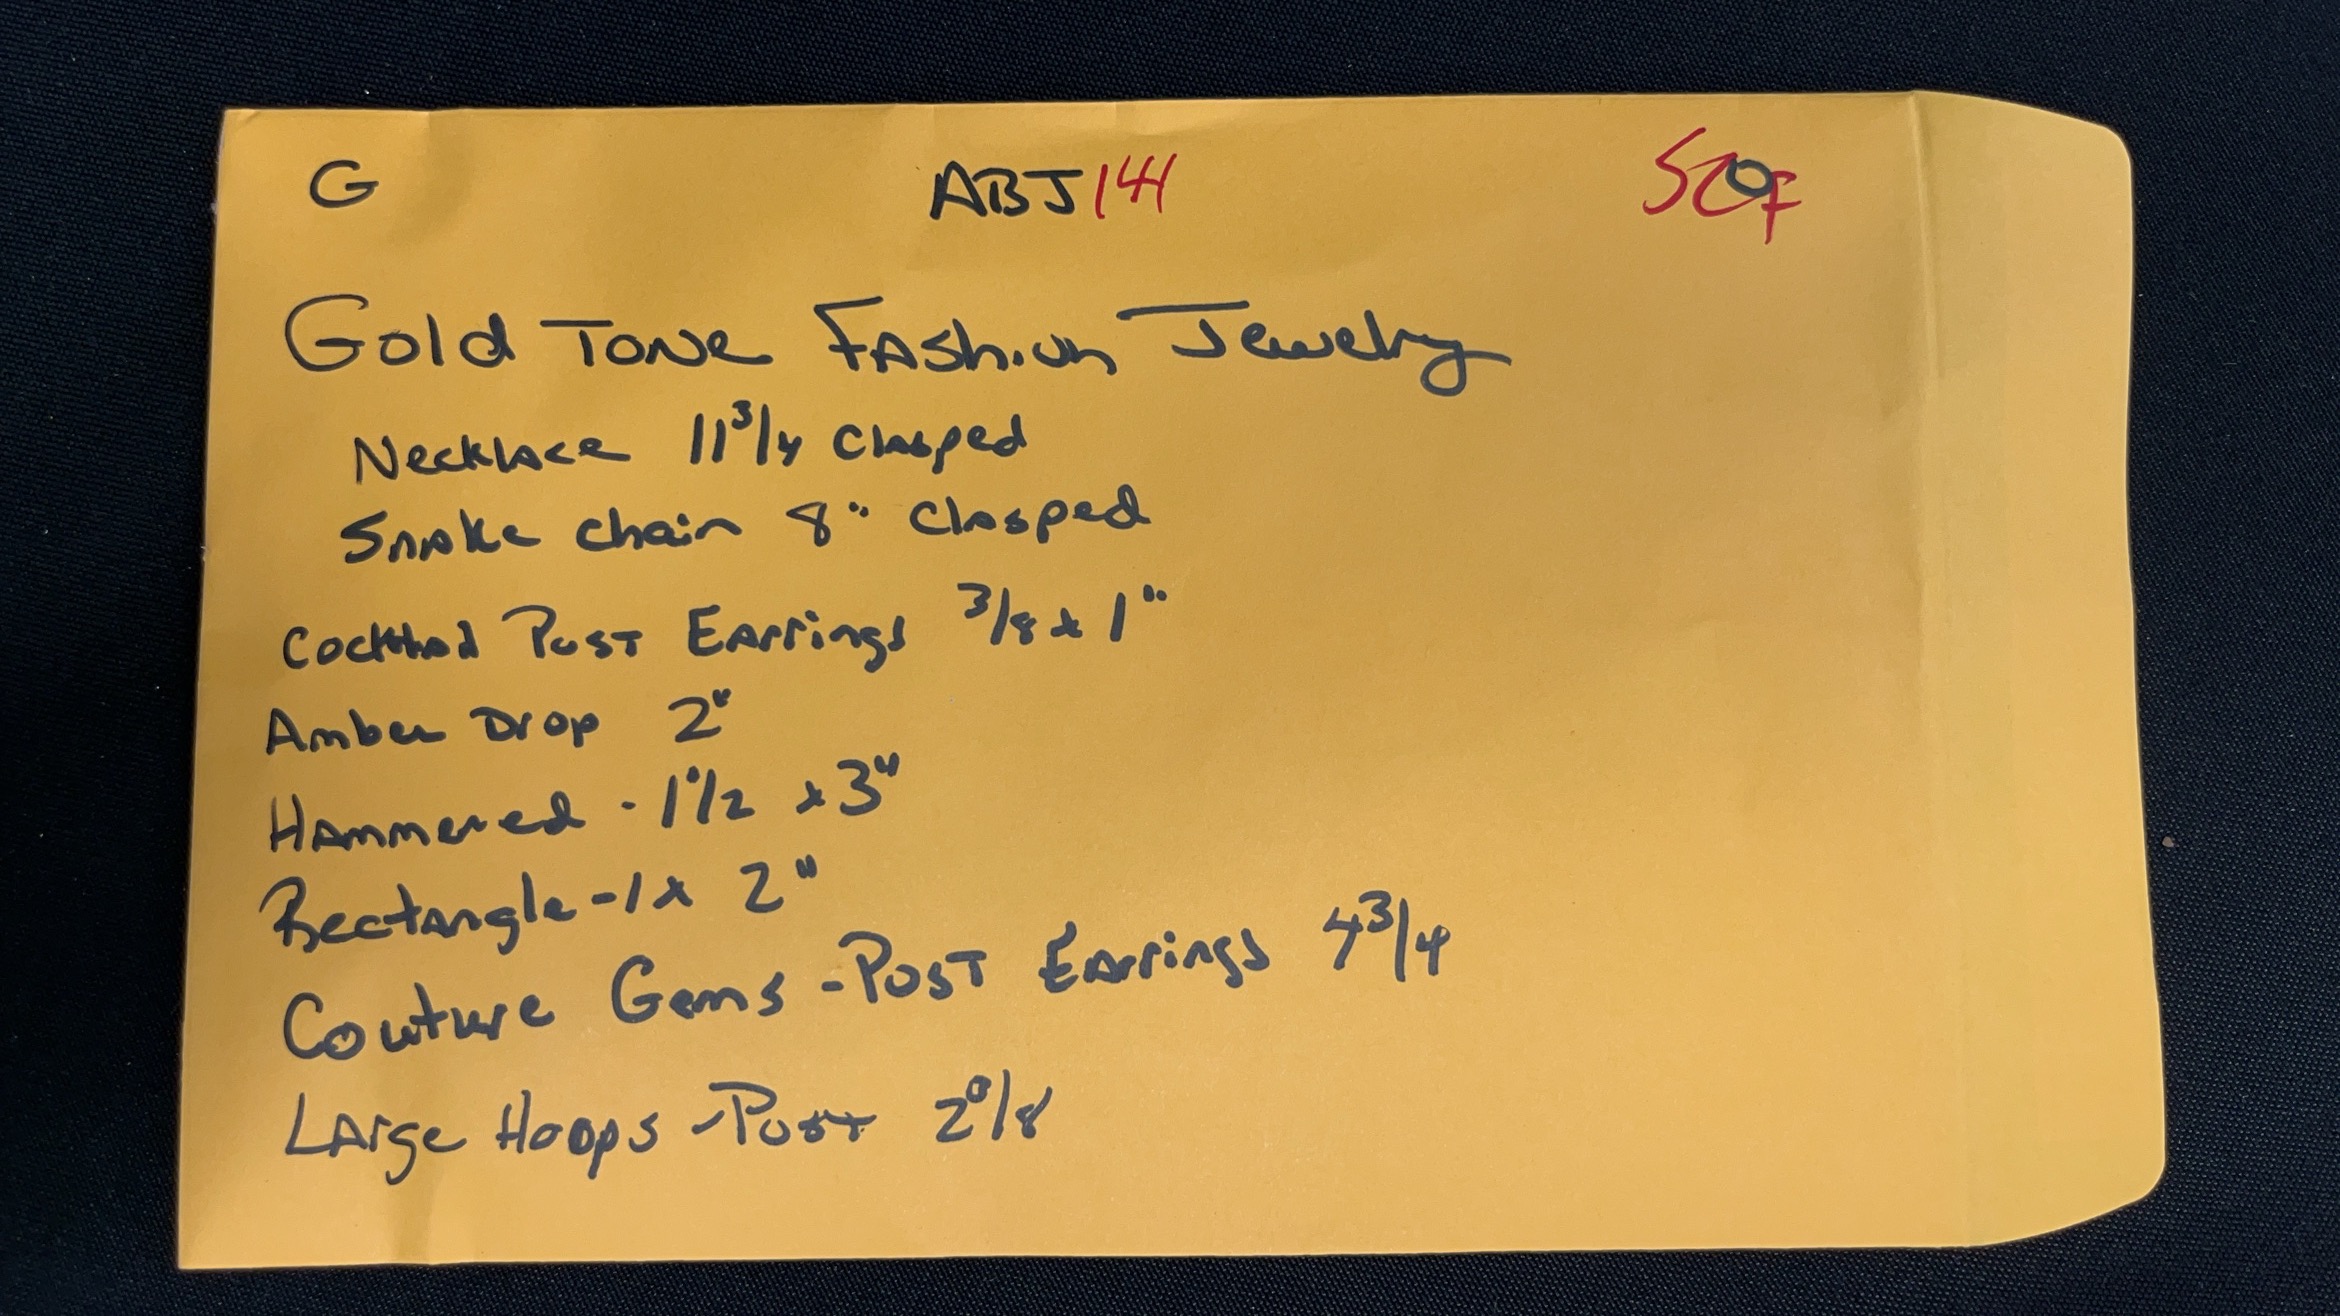 G ABJ141
Gold Tone Fashion Jewelry
Necklace 11 3/4 Clasped
Snake chain 8" Clasped
Post Earrings 3/8 x 1"
Amber Drop 2"
Hammered - 1 1/2 x 3"
Rectangle - 1 x 2"
Couture Gems - Post Earrings 4 3/4
Large Hoops - Post